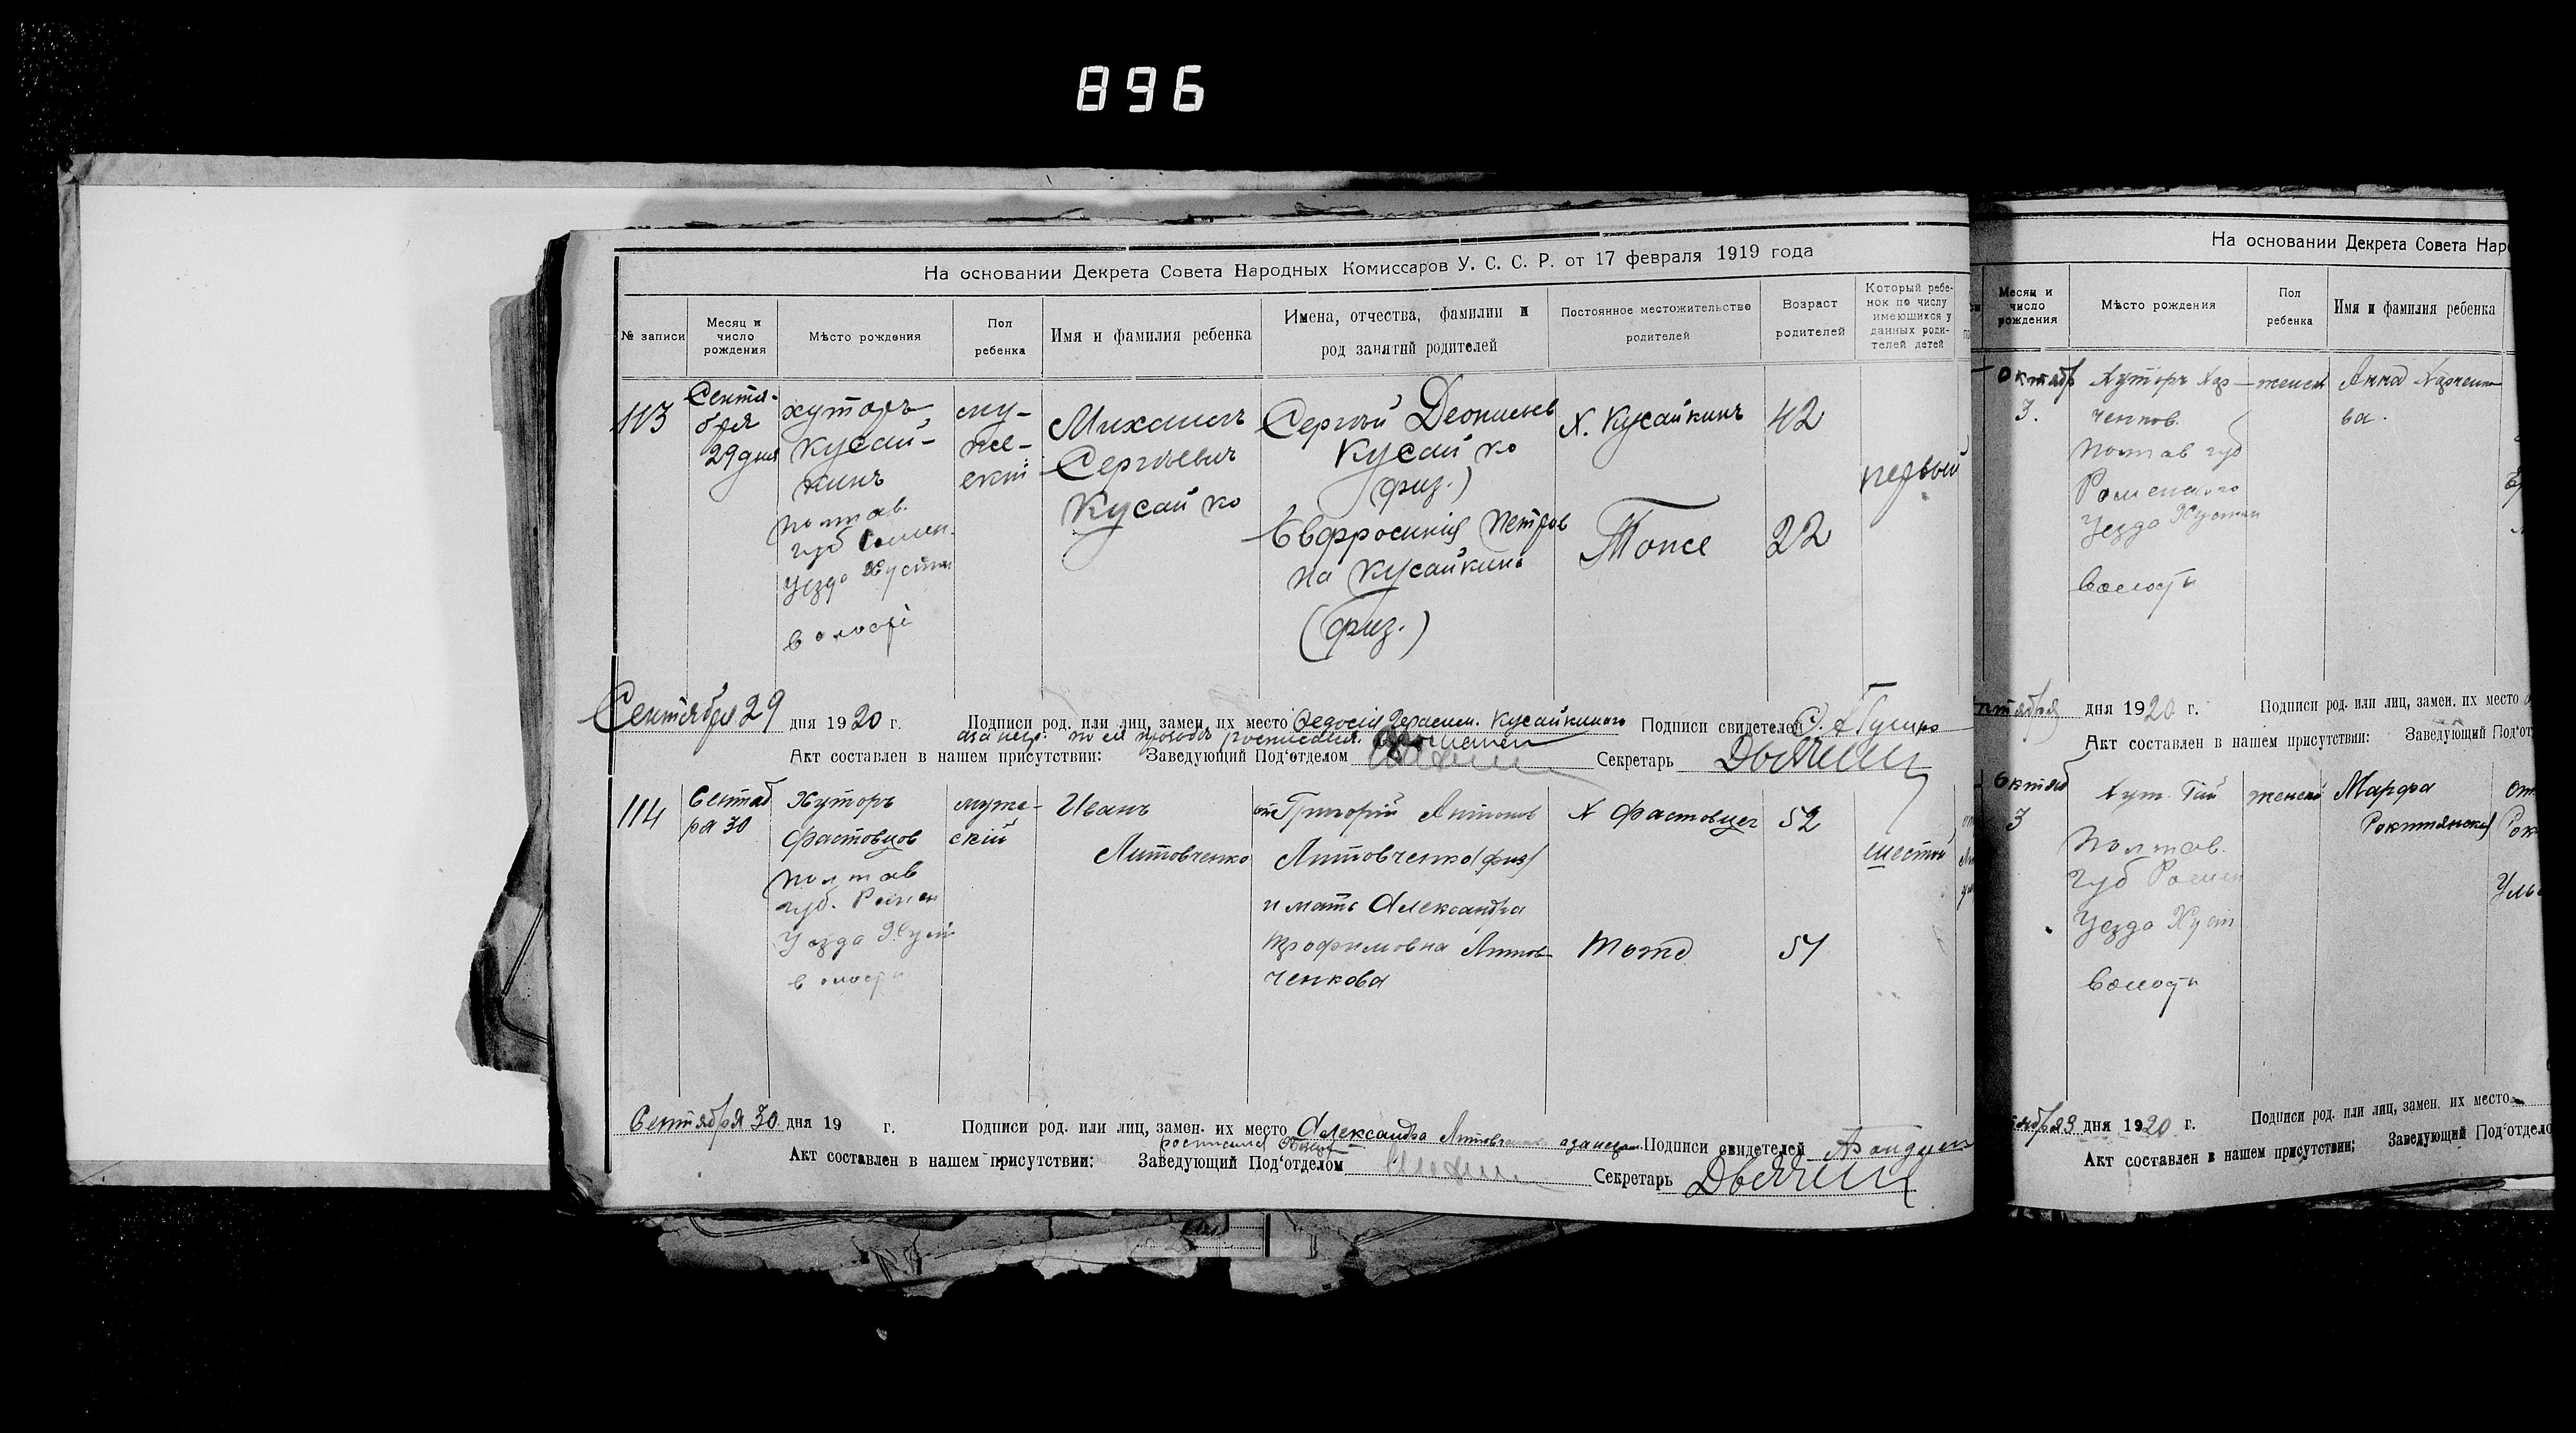 896
На основании Декрета Совета Народных Комиссаров У. С. С. Р. от 17 февраля 1919 года
№ записи
Месяц и
число
рождения
Мѣсто рождения
Пол
ребенка
Имя и фамилия ребенка
Имена, отчества, фамилии и
род занятий родителей
Постоянное местожительство
родителей
Возраст
родителей
Который ребе-
нок по числу
имеющихся у
данных роди-
телей детей
113
Сентя-
бря
29 дня
хуторъ
Кусай-
кинъ
Полтав.
губ Ромен.
Уезда Хустян
волості
му-
же-
скій
Михаилъ
Сергѣевич
Кусайко
Сергѣй Деонисьев
Кусайко
(физ.)
Евфросинія Петров
на Кусайкина
(физ.)
Х. Кусайкинъ
Тоже
42
22
первый
Сентября 29 дня 1920 г. Подписи род. или лиц, замен. их место Федосія Герасим. Кусайкиного Подписи свидетелей
а за негр. по ея просьбе росписался
Акт составлен в нашем присутствии: Заведующий Под'отделом Секретарь
114
Сентяб
ря 30
Хуторъ
Фастовцов
Полтав
губ. Ромен
Уезда Хуст
волости
муже-
скій
Иванъ
Литовченко
от Григорій Антонов
Литовченко (физ)
и мать Александра
Трофимовна Литов-
ченкова
Х Фастовцег
Тоже
52
51
шестой
Сентября 30 дня 19 г. Подписи род. или лиц, замен. их место Александра Подписи свидетелей
росписался
Акт составлен в нашем присутствии: Заведующий Под'отделом Секретарь
На основании Декрета Совета Нар
Месяц и
число
рождения
Мѣсто рождения
Пол
ребенка
Имя и фамилия ребенка
Октябр
3.
Хуторъ Хар-
ченков.
Полтав губ
Роменского
Уезда Хустян
Волости
женск
Анна Харченко
ва.
дня 1920 г. Подписи род. или лиц, замен. их место
Акт составлен в нашем присутствии: Заведующий Под'от
Октяб
3
Хут. Гай
Полтав.
Губ Ромен
Уезда Хуст
Волости
женскій
Марфа
Рокитянска
дня 1920 г. Подписи род. или лиц, замен. их место
Акт составлен в нашем присутствии; Заведующий Под'отдело